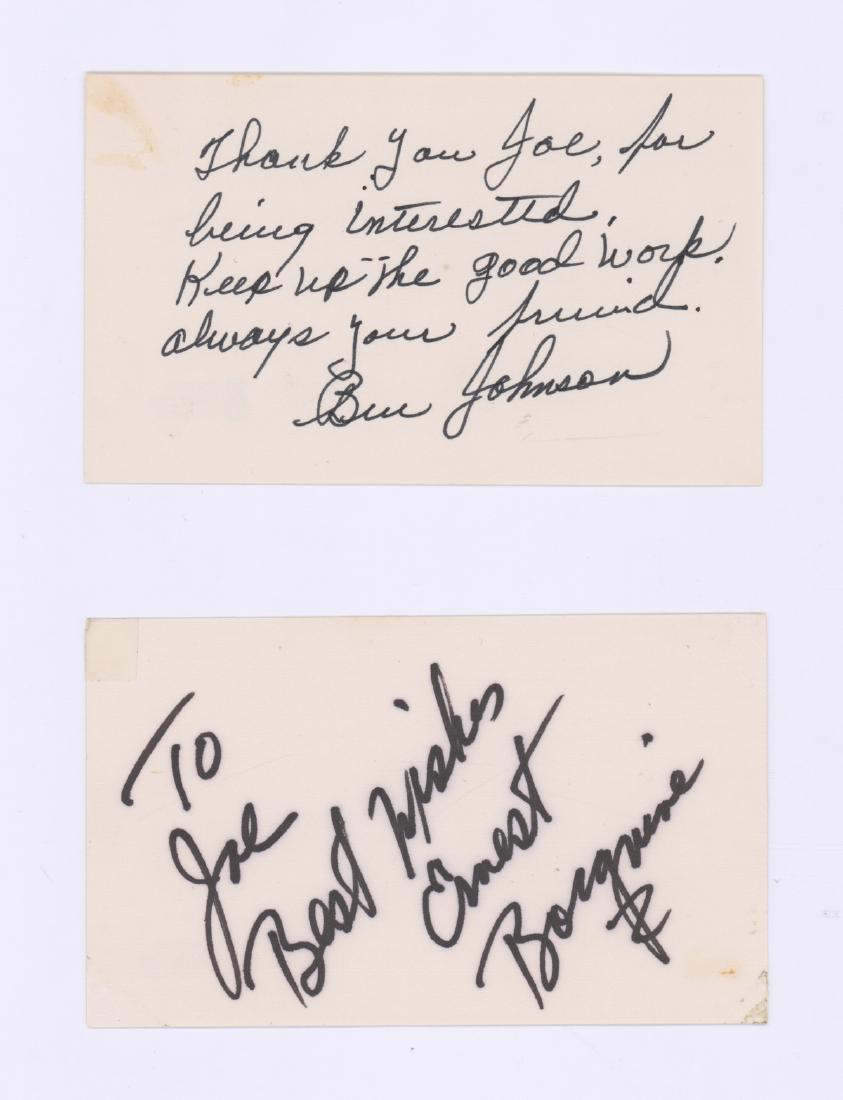 Thank you Joe, for
being interested.
Keep up the good work.
always your friend.
Ben Johnson
To
Joe
Best Wishes
Ernest
Borgnine